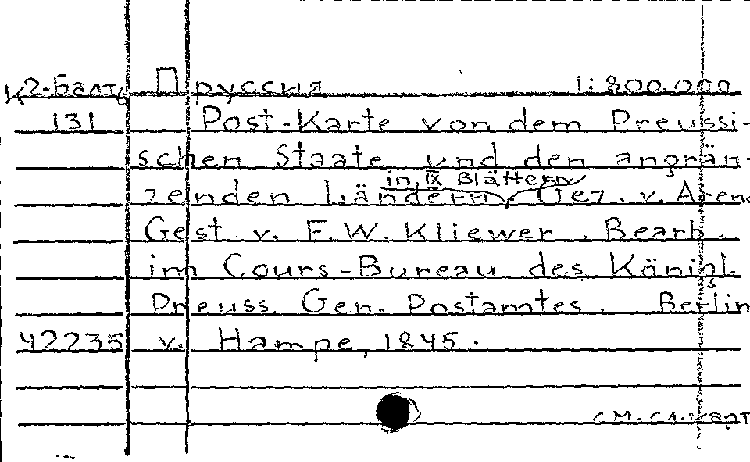 К2-Балт. Пруссия 1:800.000
131 Post-Karte von dem Preussi-
schen Staate und den angrän-
in IX Blättern
zenden Ländern, Gez. v. Arend
Gest v. F.W. Kliewer. Bearb.
im Cours-Bureau des Königl.
Preuss. Gen. Postamtes. Berlin
42235 v. Hampe, 1845.
см. сл. карт